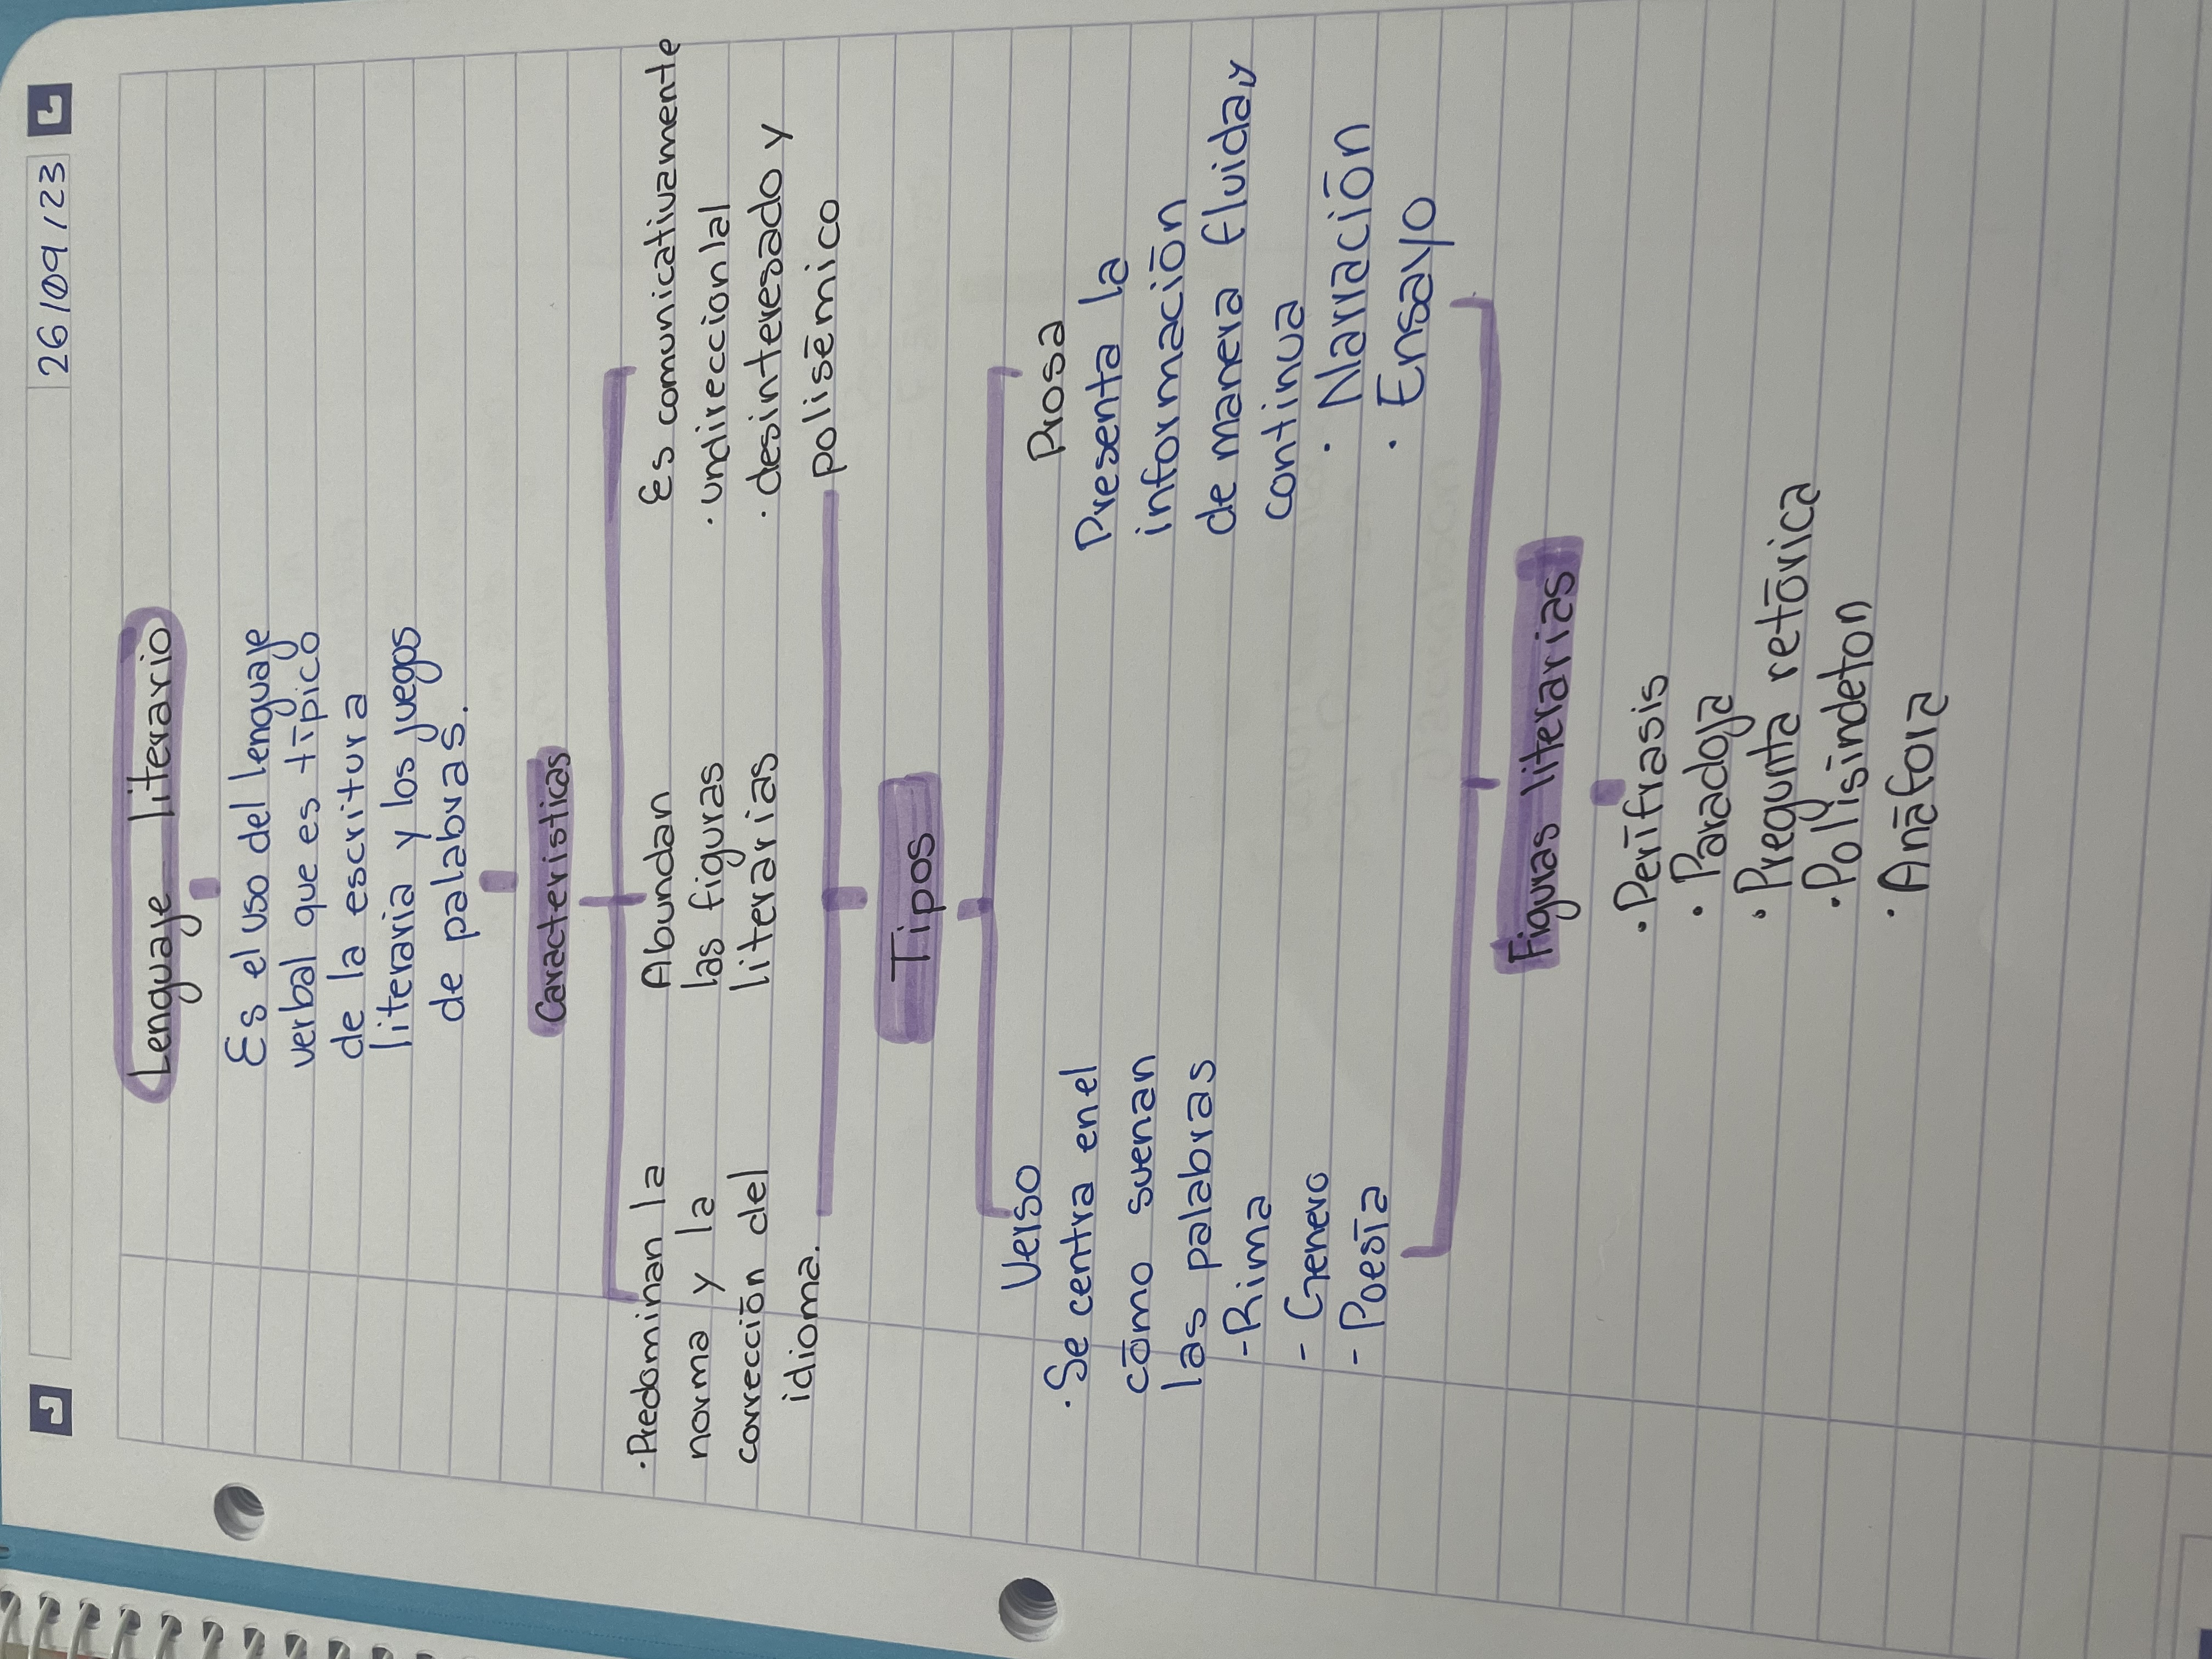 26/09/23
Lenguaje literario
Es el uso del lenguaje
verbal que es típico
de la escritura
literaria y los juegos
de palabras.
Caracteristicas
·Predominan la
norma y la
corrección del
idioma.
Abundan
las figuras
literarias
Es comunicativamente
·undireccionlal
·desinteresado y
polisémico
Tipos
Verso
·Se centra en el
cómo suenan
las palabras
-Rima
- Genero
- Poesía
Prosa
Presenta la
información
de manera fluida y
continua
· Narración
· Ensayo
Figuras literarias
·Perífrasis
· Paradoja
·Pregunta retórica
·Polisíndeton
·Anáfora